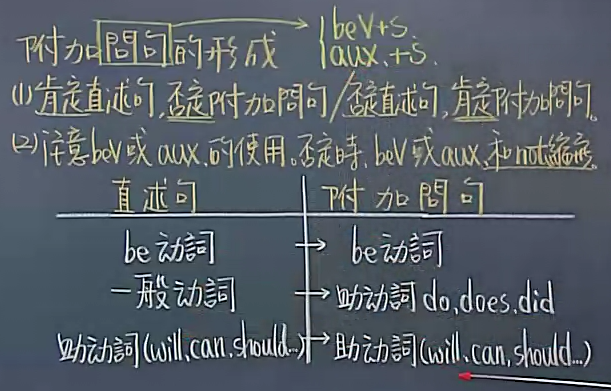 附加問句的形成 → beV+S.
aux.+S.
(1)肯定直述句,否定附加問句/否定直述句,肯定附加問句。
(2)注意beV或aux.的使用。否定時,beV或aux.和not縮寫。
直述句 附加問句
be动詞 → be动詞
一般动詞 → 助动詞do,does,did
助动詞(will,can,should...) → 助动詞(will,can,should...)